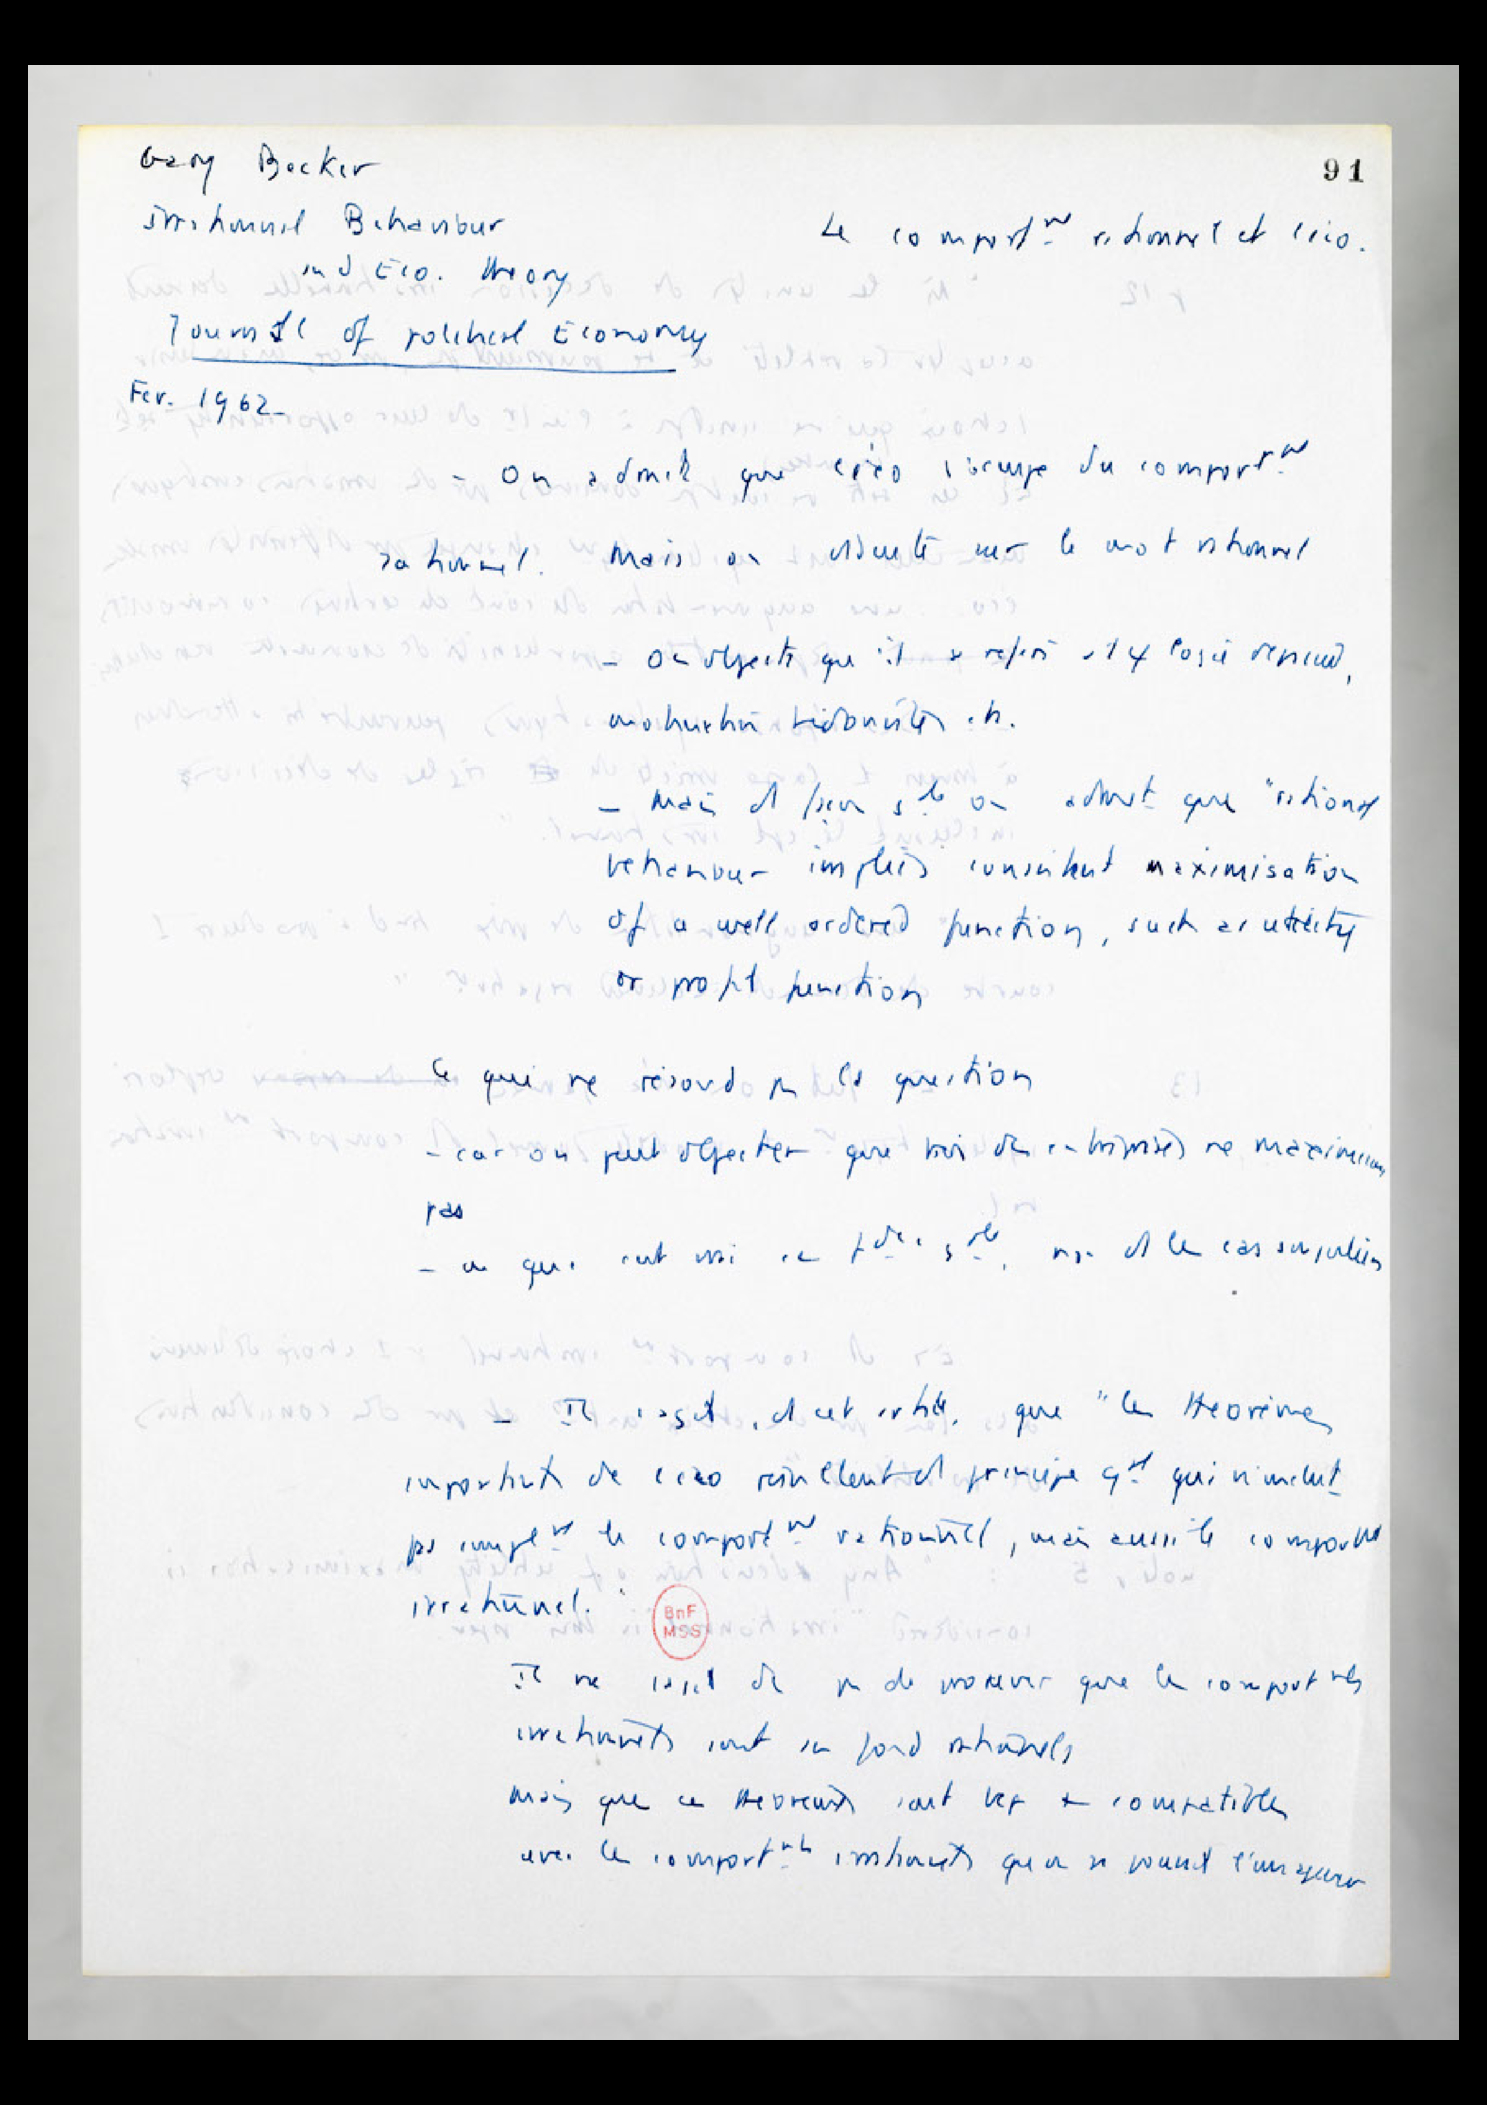 Gary Becker
91
Irrationnel Behaviour
Le comport^nt rationnel et l'éco.
and Eco. theory
Journal of political Economy
Fev. 1962
- On admet que l'éco s'occupe du comport^nt
rationnel. Mais on discute sur le mot rationnel
- On objecte que il se
motivation
- Mais on admet que "rational
behaviour implies consistent maximisation
of a well ordered function, such as utility
or profit function
Ce qui ne résoud pas la question
- car on peut objecter que bien des entreprises ne maximisent
pas
- ce qui est vrai en le cas singulier
- Il s'agit, ds cet article, que "les theorèmes
importants de l'éco résultent d'1 principe g^al qui n'inclut
pas simpl^nt le comport^nt rationnel, mais aussi le comport^nt
irrationnel."
BnF
MSS
Il ne s'agit dc pas de prouver que les comport^nts
irrationnels sont au fond rationnels
mais que ces theorèmes sont compatibles
avec les comport^nts irrationnels qu'on ne pouvait l'imaginer